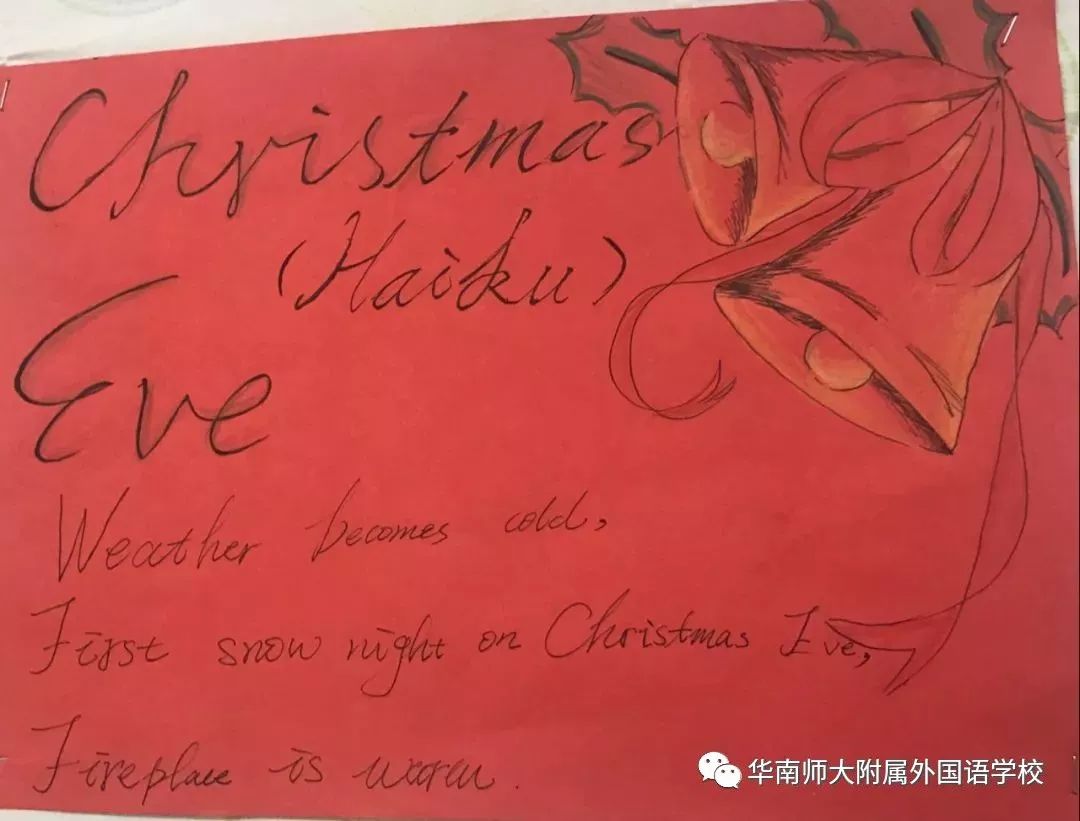 Christmas
(Haiku)
Eve
Weather becomes cold,
First snow night on Christmas Eve,
Fireplace is warm.
华南师大附属外国语学校